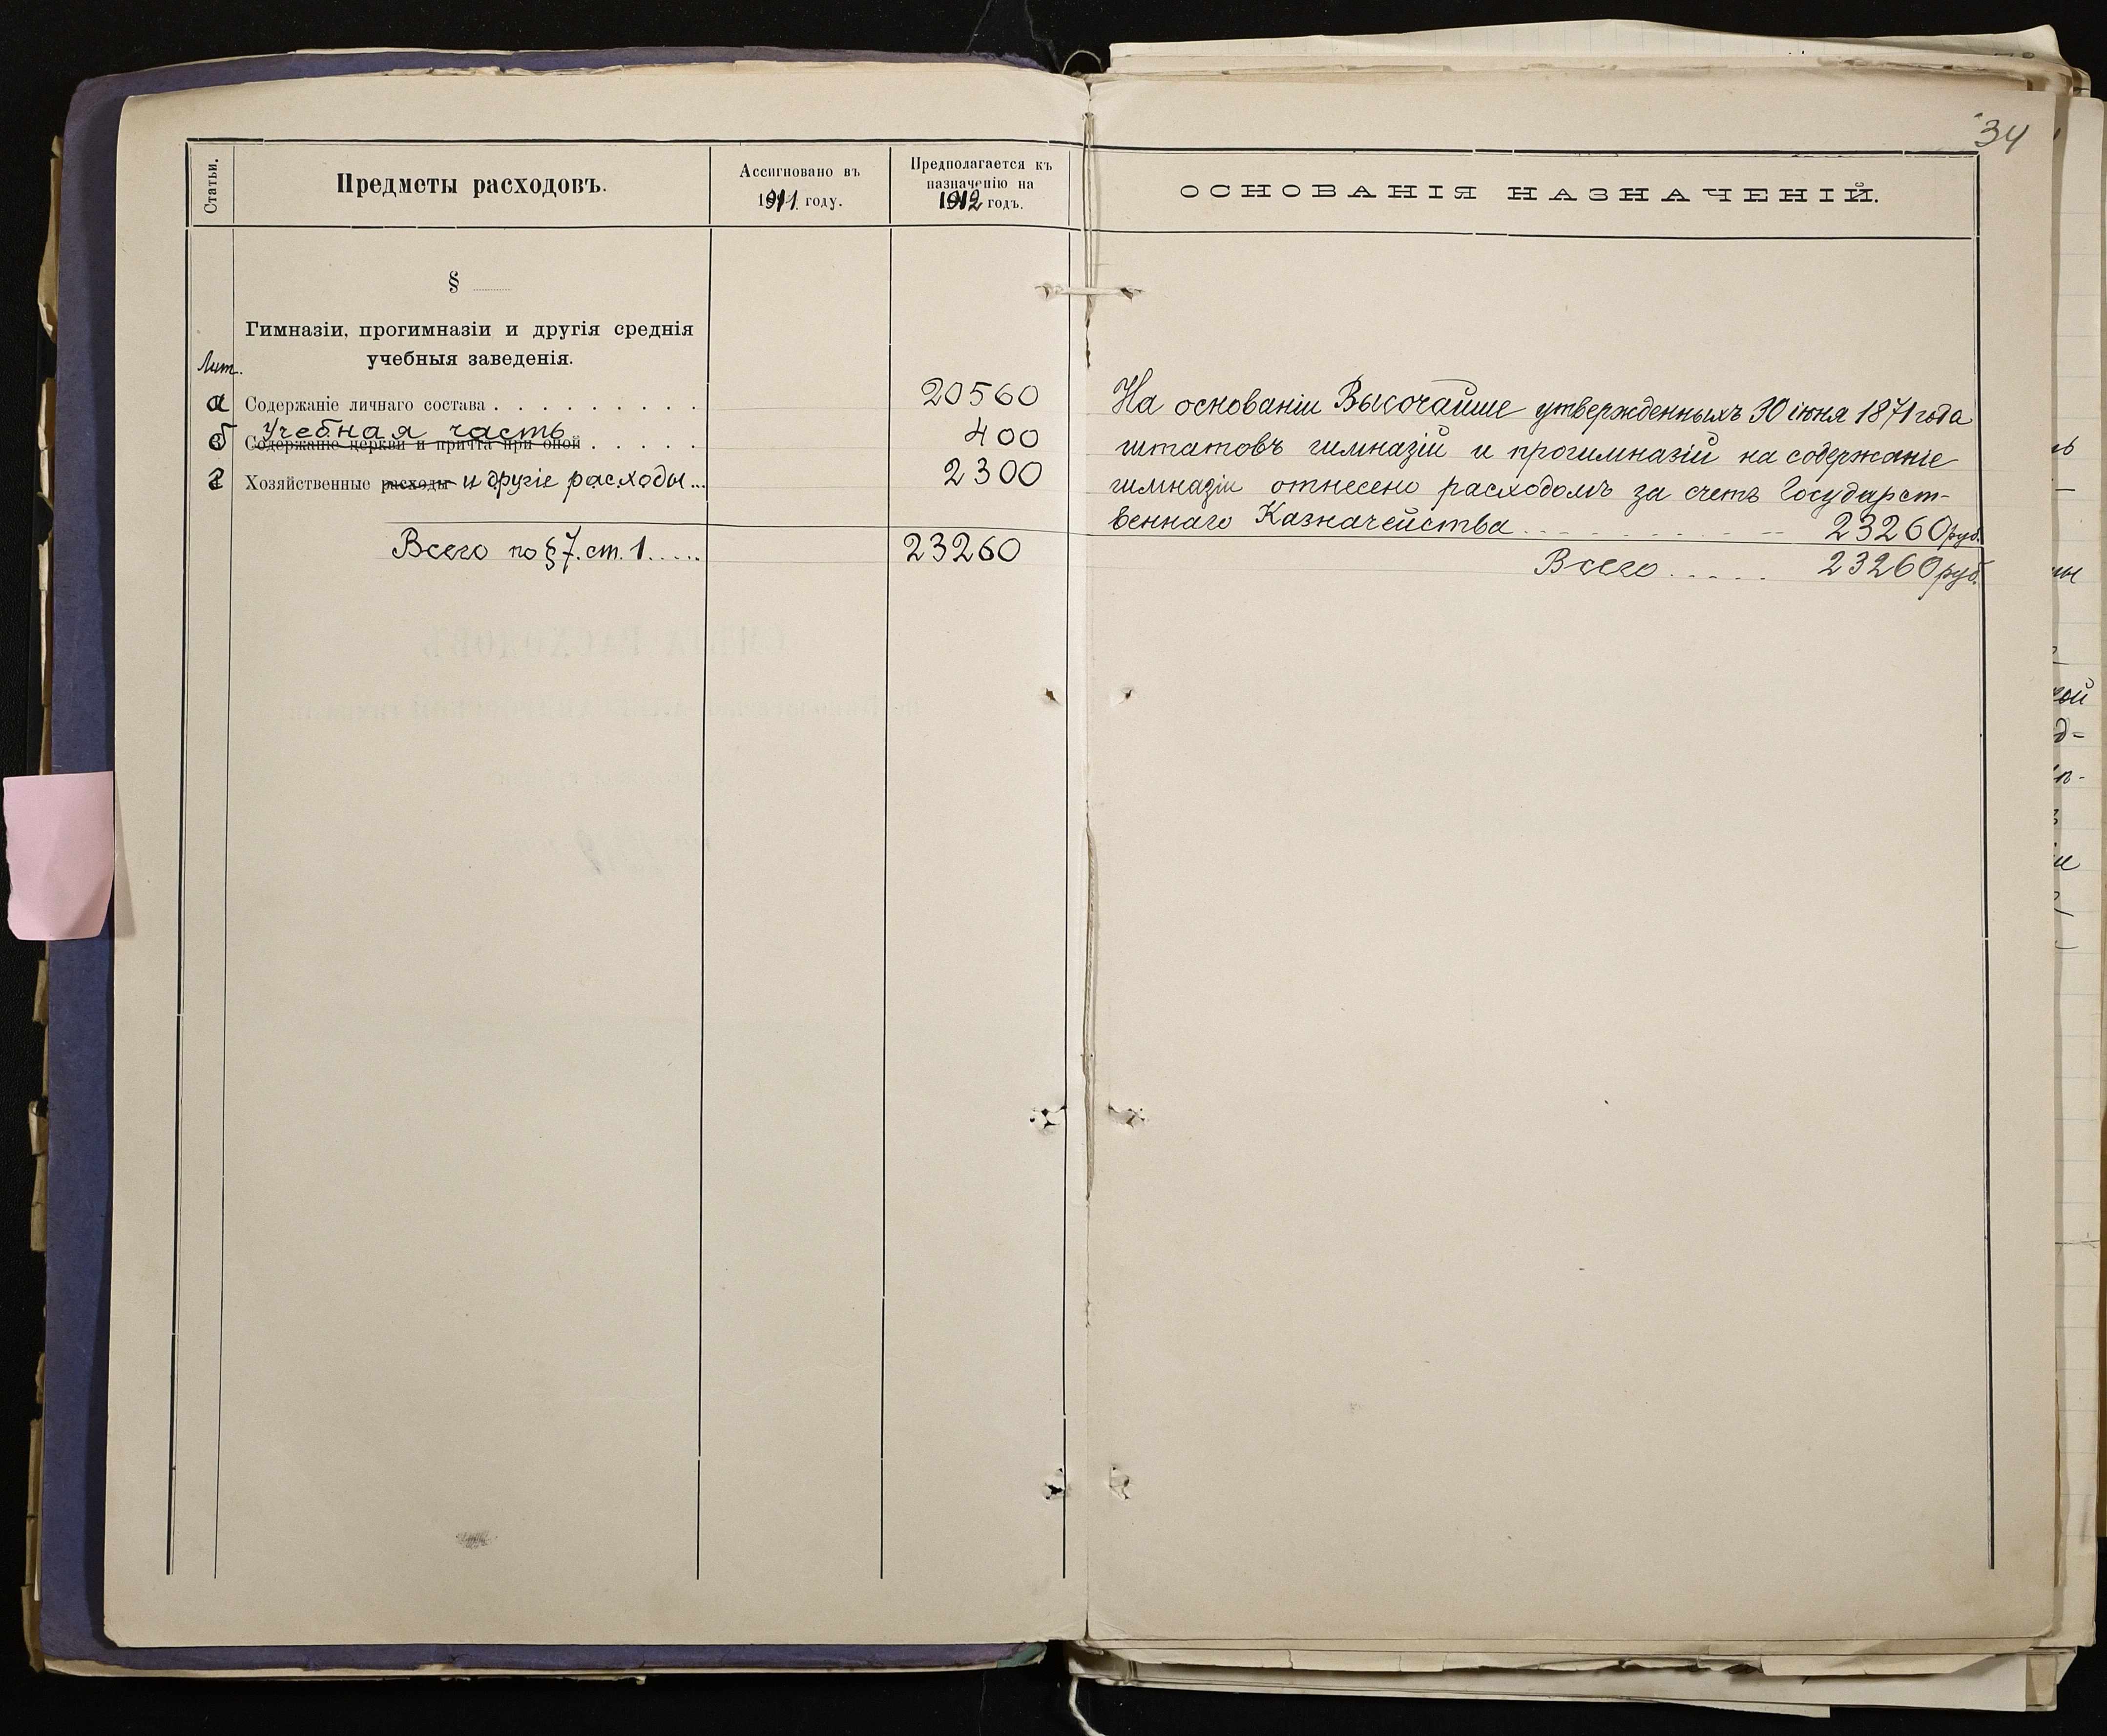 34
Статьи.
Предметы расходовъ.
Ассигновано въ
1911 году.
Предполагается къ
назначенію на
1912 годъ.
ОСНОВАНІЯ НАЗНАЧЕНІЙ.
§
Гимназіи, прогимназіи и другія среднія
учебныя заведенія.
Лит.
а Содержаніе личнаго состава . . . . . . . . . 20560
Учебная часть
б Содержаніе церкви и причта при оной . . . . . 400
г Хозяйственные расходы и другіе расходы... 2300
Всего по §7. ст. 1..... 23260
На основаніи Высочайше утвержденныхъ 30 іюня 1871 года
штатовъ гимназій и прогимназій на содержаніе
гимназіи отнесено расходомъ за счетъ Государст-
веннаго Казначейства . . . . . . . . . . 23260 руб.
Всего . . . . . 23260 руб.